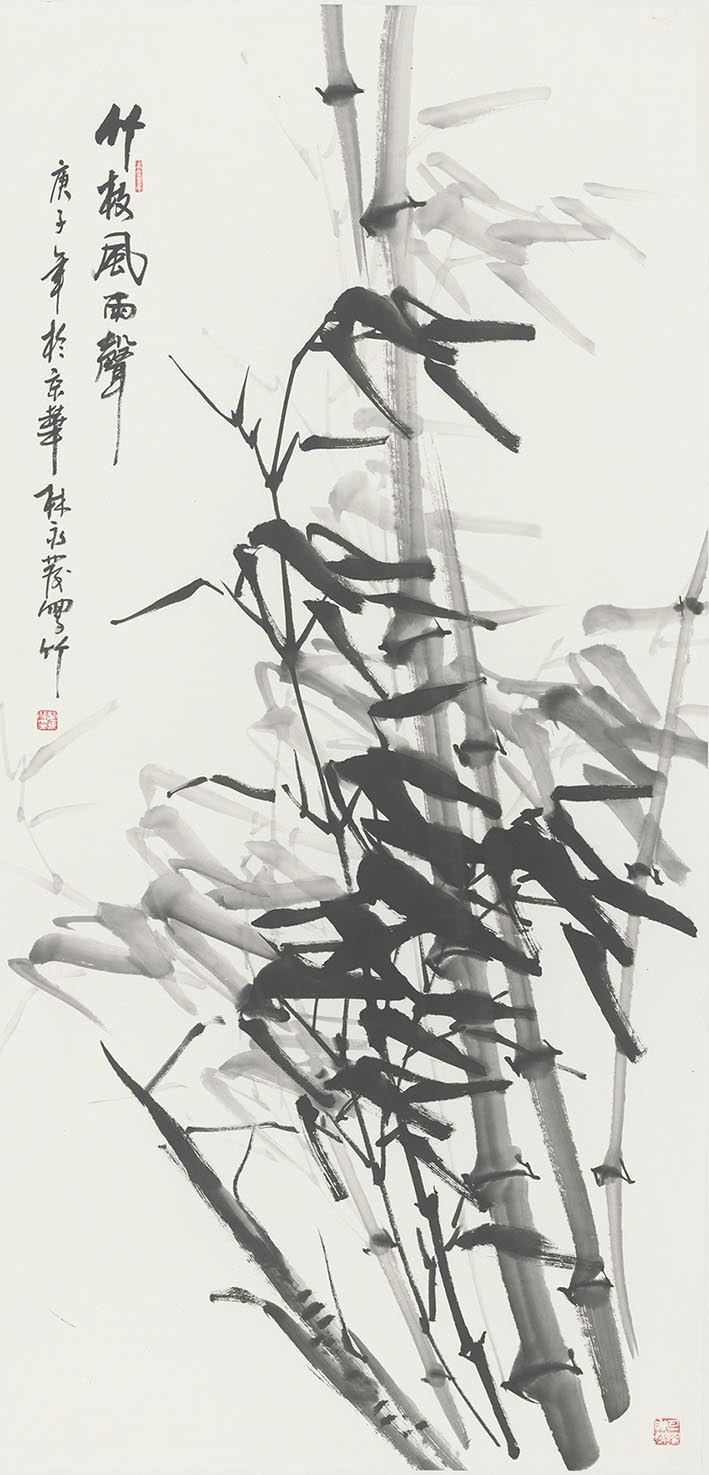 竹枝風雨聲
庚子年於京華林永茂寫竹